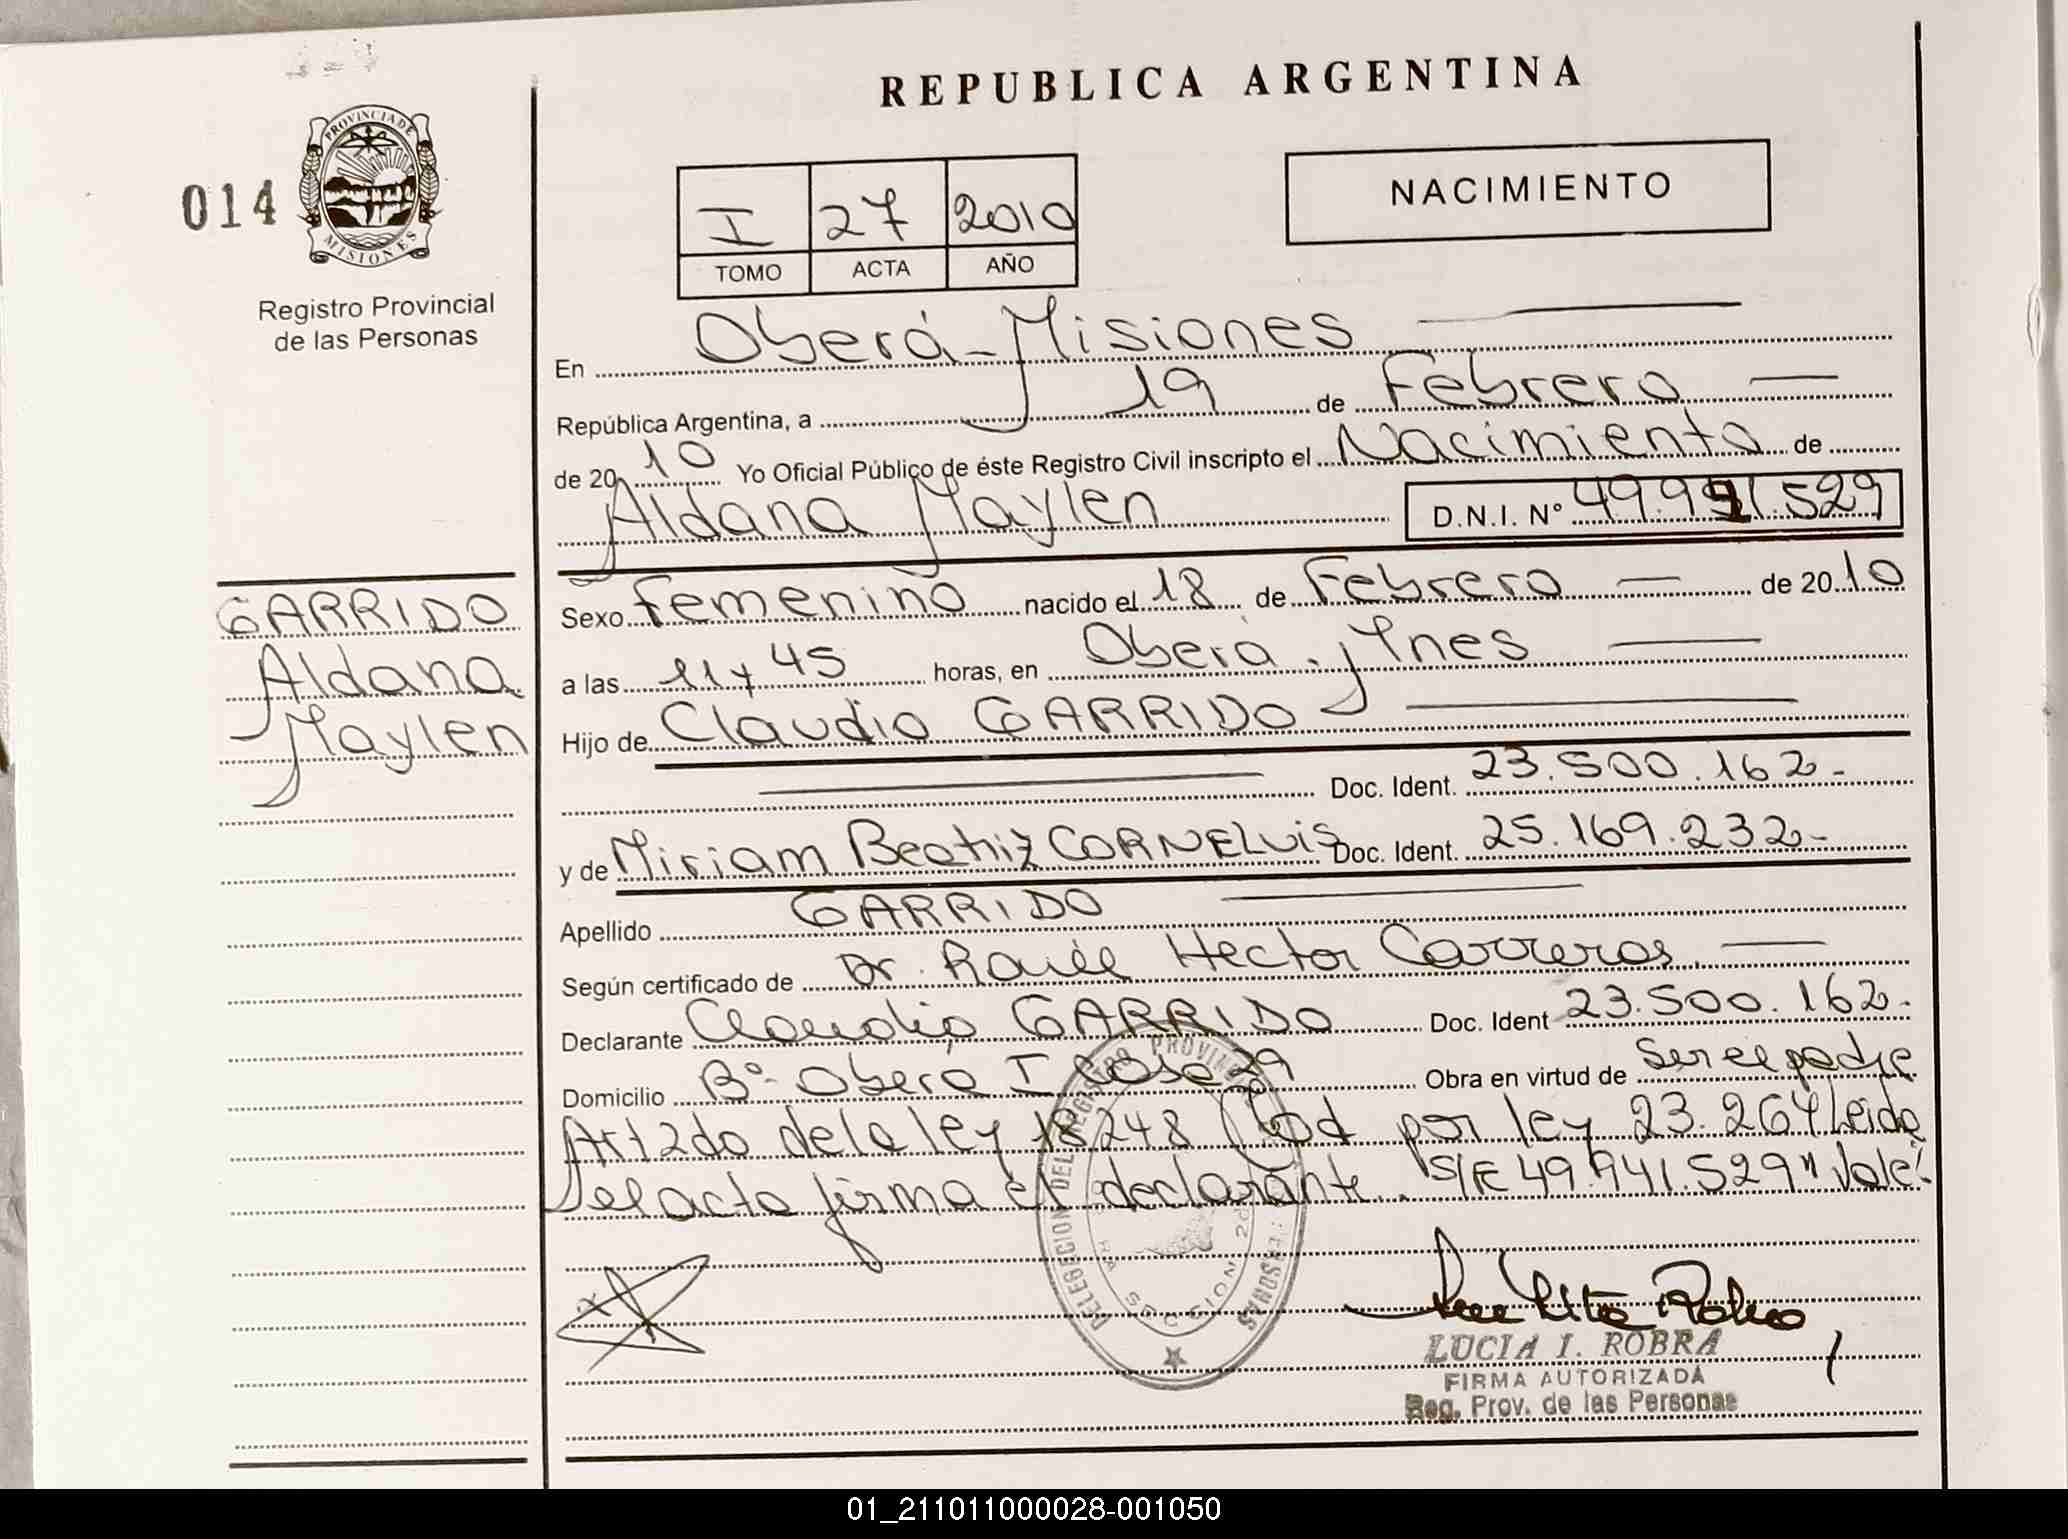 REPUBLICA ARGENTINA
014
PROVINCIA DE
MISIONES
Registro Provincial
de las Personas
I 27 2010
TOMO ACTA AÑO
NACIMIENTO
En Oberá - Misiones
República Argentina, a 19 de Febrero
de 2010 Yo Oficial Público de éste Registro Civil inscripto el Nacimiento de
Aldana Maylen D.N.I. Nº 49.941.529
GARRIDO
Aldana
Maylen
Sexo Femenino nacido el 18 de Febrero de 2010
a las 11 y 45 horas, en Oberá. Mnes
Hijo de Claudio GARRIDO
Doc. Ident. 23.500.162-
y de Miriam Beatriz CORNELUIS Doc. Ident. 25.169.232-
Apellido GARRIDO
Según certificado de Dr. Raúl Hector Carreras
Declarante Claudio GARRIDO Doc. Ident 23.500.162-
Domicilio Bº Oberá I Casa 29 Obra en virtud de ser el padre
Art 2do de la ley 18248 Mod por ley 23.264 Leida
el acta firma el declarante. S/E 49.941.529" Vale.
DELEGACION DEL REGISTRO PROVINCIAL PERSONAS
SECCION 2da
LUCIA I. ROBRA
FIRMA AUTORIZADA
Reg. Prov. de las Personas
01_211011000028-001050